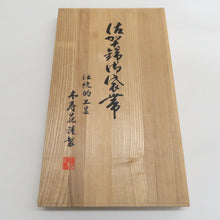 佐賀錦御袋帯
伝統的工芸
木寿苑謹製